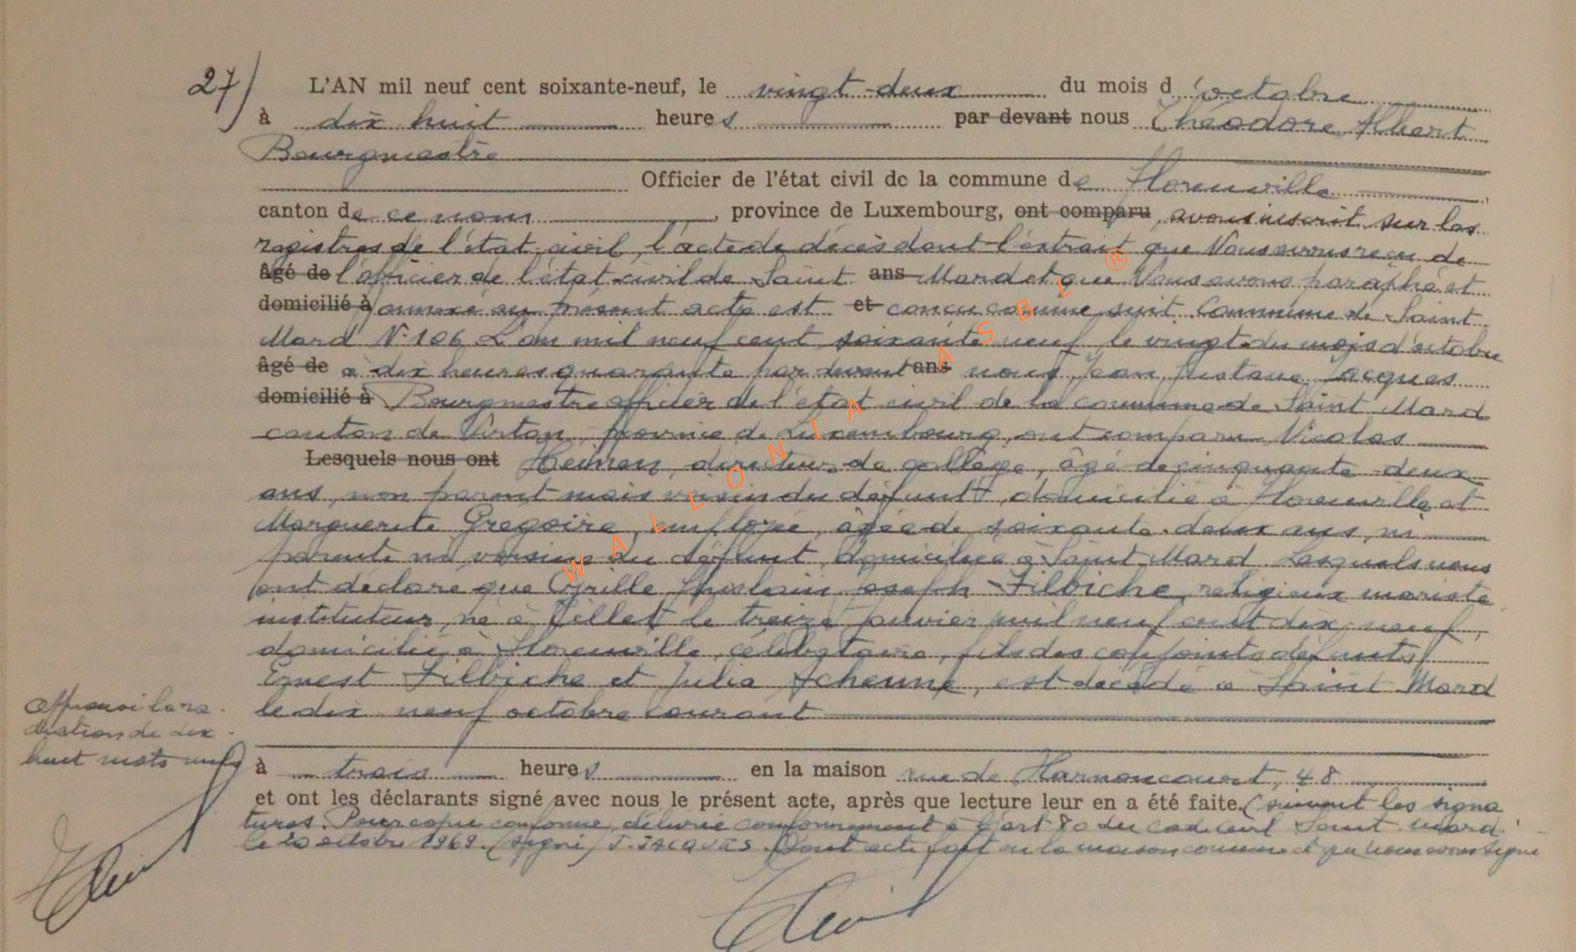 27) L'AN mil neuf cent soixante-neuf, le vingt-deux du mois d'octobre
à dix huit heures par devant nous Théodore Albert
Bourgmestre
Officier de l'état civil de la commune de Florenville
canton de ce nom, province de Luxembourg, ont comparu, avons inscrit sur les
registres de l'état-civil, l'acte de décès dont l'extrait que Nous avons reçu de
âgé de l'officier de l'état-civil de Saint ans Mard et que Nous avons paraphé et
domicilié à annexé au présent acte est et conçu comme suit. Commune de Saint
Mard N° 106 L'an mil neuf cent soixante neuf le vingt du mois d'octobre
âgé de à dix heures quarante par devant ans nous, Jean, Gustave Jacques
domicilié à Bourgmestre officier de l'état civil de la commune de Saint Mard
canton de Virton, province de Luxembourg, ont comparu Nicolas
Lesquels nous ont directeur de collège, âgé de cinquante deux
ans, non parent mais voisin du défunt, domicilié à Florenville et
Marguerite Grégoire, employée, âgée de soixante-deux ans, ni
parente ni voisine du défunt, domiciliée à Saint-Mard Lesquels nous
ont déclaré que Cyrille Ghislain Joseph Filbiche, religieux mariste
instituteur, né à Tillet le treize janvier mil neuf cent dix-neuf,
domicilié à Florenville, célibataire, fils des conjoints défunts
Ernest Filbiche et Julia Scheune, est décédé à Saint Mard
le dix neuf octobre courant
Approuvé la ra-
diation de dix-
huit mots nuls
à trois heures en la maison rue de Harnoncourt, 48
et ont les déclarants signé avec nous le présent acte, après que lecture leur en a été faite. (suivent les signa
tures. Pour copie conforme, délivrée conformément à l'art 80 du code civil Saint-Mard
le 20 octobre 1969. (signé) J. JACQUES. Dont acte fait en la maison commune et que Nous avons signé
WALLONIA ASBL ®